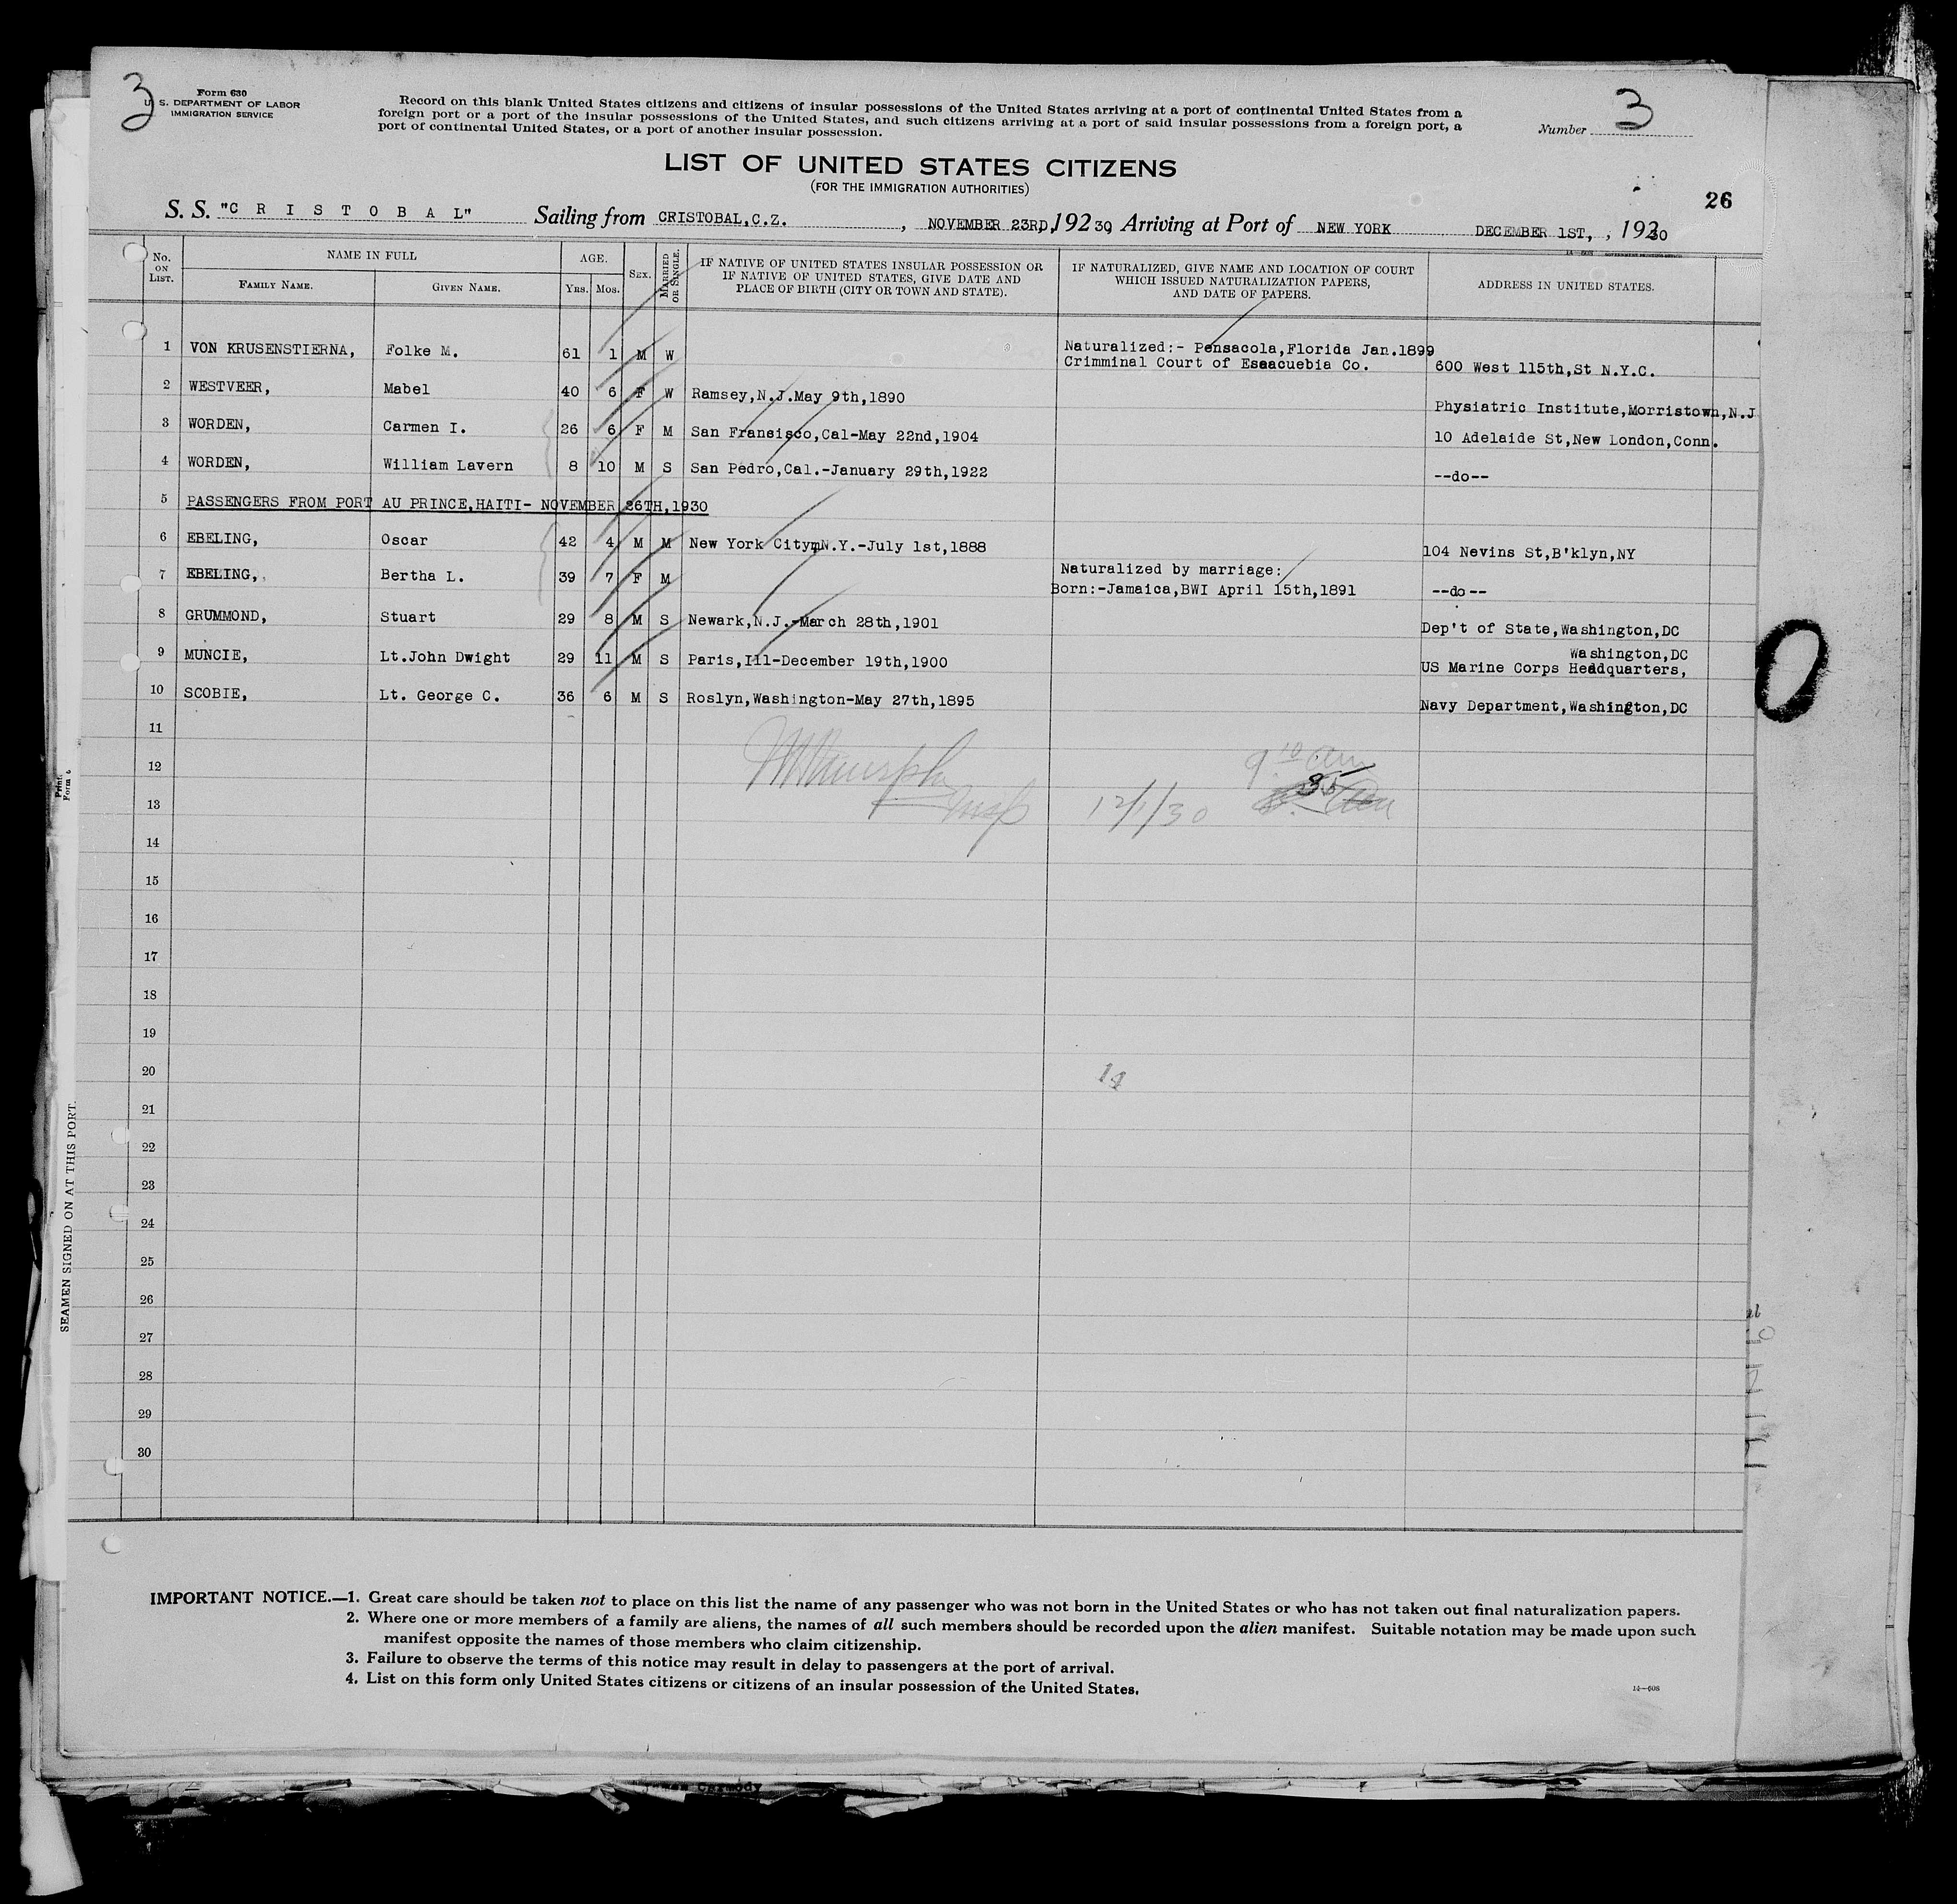 3
Form 630
U. S. DEPARTMENT OF LABOR
IMMIGRATION SERVICE
Record on this blank United States citizens and citizens of insular possessions of the United States arriving at a port of continental United States from a
foreign port or a port of the insular possessions of the United States, and such citizens arriving at a port of said insular possessions from a foreign port, a
port of continental United States, or a port of another insular possession.
Number 3
LIST OF UNITED STATES CITIZENS
(FOR THE IMMIGRATION AUTHORITIES)
26
S. S. "C R I S T O B A L" Sailing from CRISTOBAL,C.Z. , NOVEMBER 23RD, 192 30, Arriving at Port of NEW YORK DECEMBER 1ST, , 192 30
No. ON LIST. NAME IN FULL AGE. SEX. MARRIED OR SINGLE. IF NATIVE OF UNITED STATES INSULAR POSSESSION OR IF NATIVE OF UNITED STATES, GIVE DATE AND PLACE OF BIRTH (CITY OR TOWN AND STATE). IF NATURALIZED, GIVE NAME AND LOCATION OF COURT WHICH ISSUED NATURALIZATION PAPERS, AND DATE OF PAPERS. ADDRESS IN UNITED STATES.
FAMILY NAME. GIVEN NAME. YRS. MOS.
1 VON KRUSENSTIERNA, Folke M. 61 1 M W Naturalized:- Pensacola,Florida Jan.1899
Crimminal Court of Esaacuebia Co. 600 West 115th,St N.Y.C.
2 WESTVEER, Mabel 40 6 F W Ramsey,N.J.May 9th,1890 Physiatric Institute,Morristown,N.J
3 WORDEN, Carmen I. 26 6 F M San Fransisco,Cal-May 22nd,1904 10 Adelaide St,New London,Conn.
4 WORDEN, William Lavern 8 10 M S San Pedro,Cal.-January 29th,1922 --do--
5 PASSENGERS FROM PORT AU PRINCE,HAITI- NOVEMBER 26TH,1930
6 EBELING, Oscar 42 4 M M New York City,N.Y.-July 1st,1888 104 Nevins St,B'klyn,NY
7 EBELING, Bertha L. 39 7 F M Naturalized by marriage:
Born:-Jamaica,BWI April 15th,1891 --do--
8 GRUMMOND, Stuart 29 8 M S Newark,N.J.-March 28th,1901 Dep't of State,Washington,DC
9 MUNCIE, Lt.John Dwight 29 11 M S Paris,Ill-December 19th,1900 Washington,DC
US Marine Corps Headquarters,
10 SCOBIE, Lt. George C. 36 6 M S Roslyn,Washington-May 27th,1895 Navy Department,Washington,DC
11
12 9 10 am
13 12/1/30
14
15
16
17
18
19
20 14
21
22
23
24
25
26
27
28
29
30
SEAMEN SIGNED ON AT THIS PORT.
IMPORTANT NOTICE.—1. Great care should be taken not to place on this list the name of any passenger who was not born in the United States or who has not taken out final naturalization papers.
2. Where one or more members of a family are aliens, the names of all such members should be recorded upon the alien manifest. Suitable notation may be made upon such
manifest opposite the names of those members who claim citizenship.
3. Failure to observe the terms of this notice may result in delay to passengers at the port of arrival.
4. List on this form only United States citizens or citizens of an insular possession of the United States.
14—608
Carmody